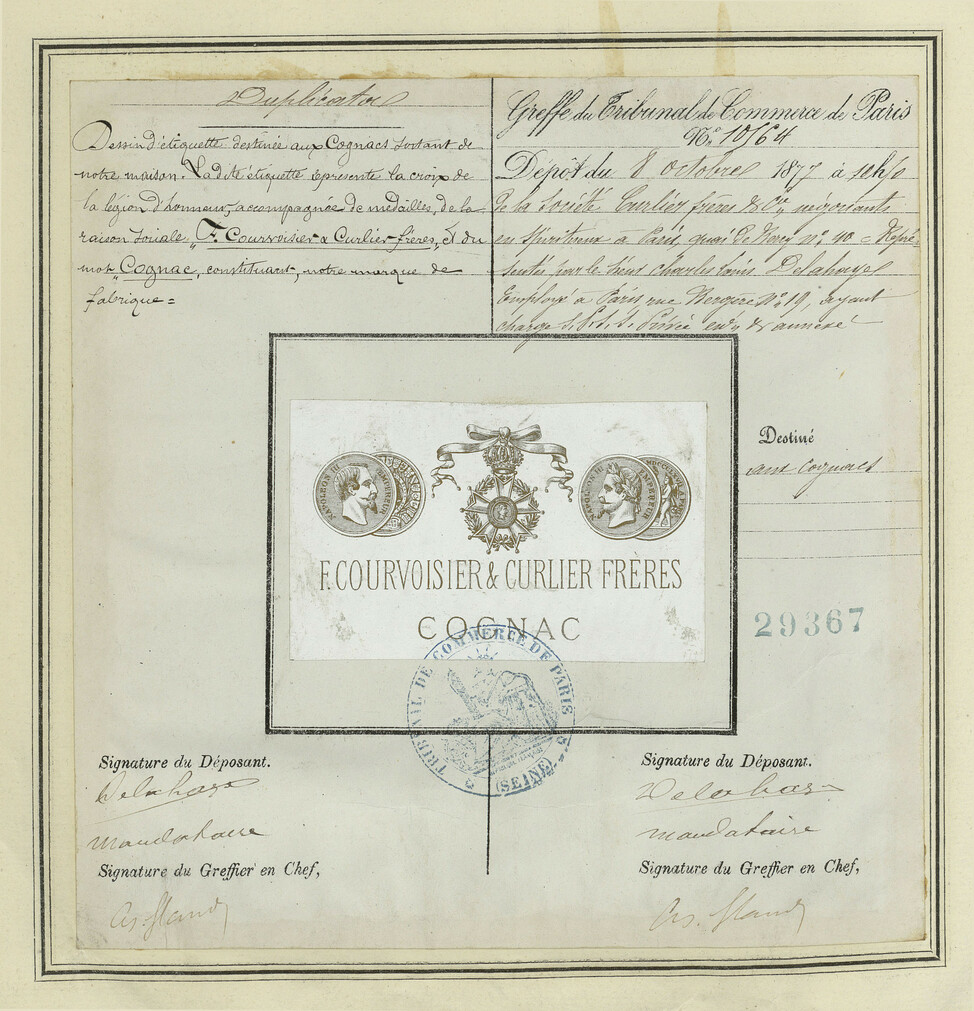 Duplicata
Dessin d'étiquette destinée aux Cognacs sortant de
notre maison. La dite étiquette représente la croix de
la légion d'honneur, accompagnée de médailles, de la
raison sociale „F. Courvoisier & Curlier frères, et du
mot „Cognac, constituant, notre marque de
fabrique =
Greffe du Tribunal de Commerce de Paris
No. 10564
Dépôt du 8 Octobre 1877 à 10h½
de la Société Curlier frères & Cie, négociants
en Spiritueux à Paris, quai de Bercy no. 40 = Repré-
sentés par le Sieur Charles Louis Delahaye
Employé à Paris rue Bergère No. 19, ayant
charge
NAPOLEON III EMPEREUR
NAPOLEON III EMPEREUR
F. COURVOISIER & CURLIER FRÈRES
COGNAC
Destiné
aux Cognacs
29367
TRIBUNAL DE COMMERCE DE PARIS
(SEINE)
Signature du Déposant.
Delahaye
Mandataire
Signature du Greffier en Chef,
Signature du Déposant.
Delahaye
mandataire
Signature du Greffier en Chef,